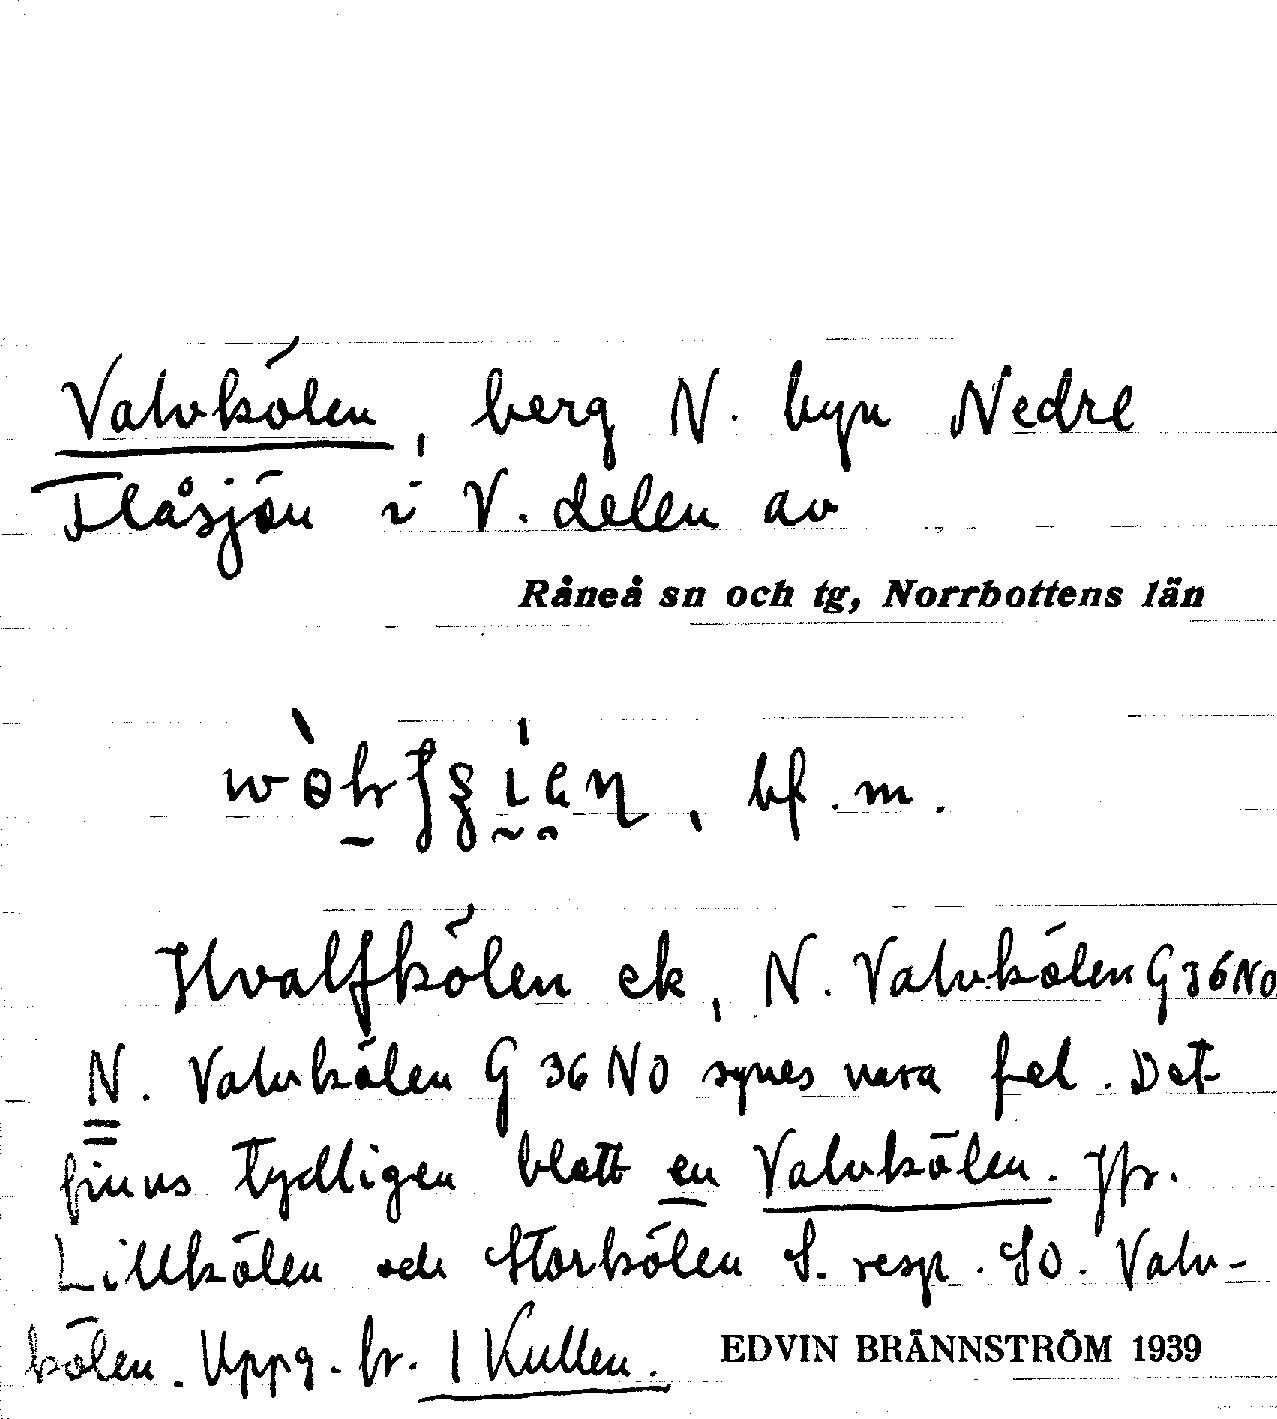 Valvkölen, berg N. byn Nedre
Flåsjön i V. delen av
Råneå sn och tg, Norrbottens län
bf. m.
Hvalfkölen ek, N. Valvkölen G 36 NO
N. Valvkölen G 36 NO synes vara fel. Det
finns tydligen blott en Valvkölen. Jfr.
Lillkölen och Storkölen S. resp. SO. Valv-
kölen. Uppg. fr. 1 Kullen.
EDVIN BRÄNNSTRÖM 1939